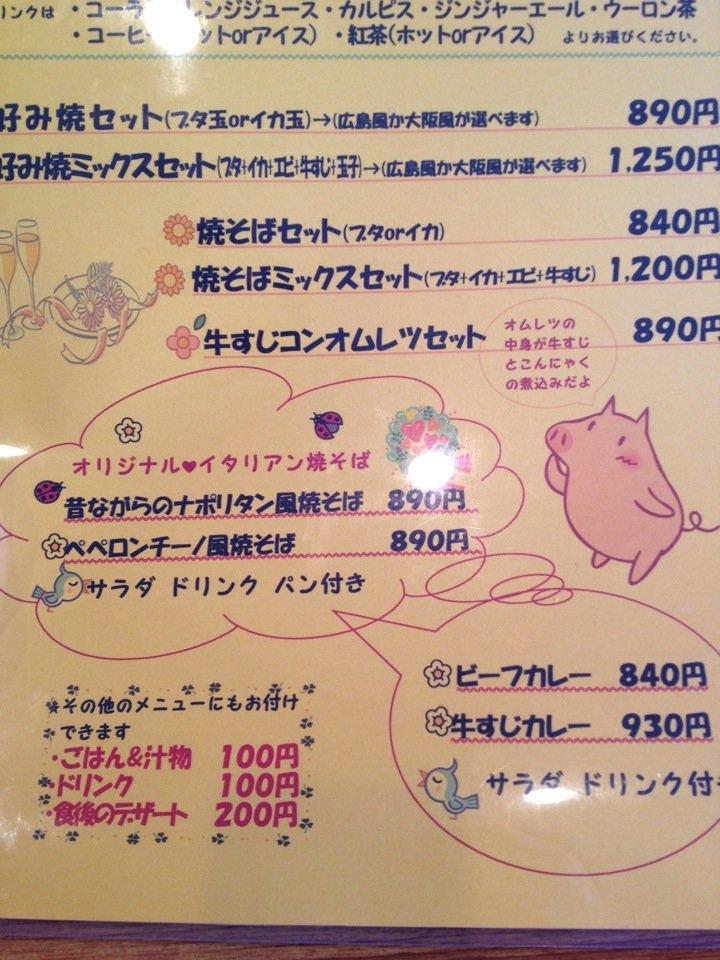 リンクは ・コーラ レンジジュース・カルピス・ジンジャーエール・ウーロン茶
・コーヒー ットorアイス) ・紅茶(ホットorアイス) よりお選びください。
好み焼セット(ブタ玉orイカ玉)→(広島風か大阪風が選べます) 890円
好み焼ミックスセット(ブタ+イカ+エビ+牛すじ+玉子)→(広島風か大阪風が選べます) 1,250円
焼そばセット(ブタorイカ) 840円
焼そばミックスセット(ブタ+イカ+エビ+牛すじ) 1,200円
牛すじコンオムレツセット 890円
オムレツの
中身が牛すじ
とこんにゃく
の煮込みだよ
オリジナル♥イタリアン焼そば
昔ながらのナポリタン風焼そば 890円
ペペロンチーノ風焼そば 890円
サラダ ドリンク パン付き
ビーフカレー 840円
牛すじカレー 930円
サラダ ドリンク付き
その他のメニューにもお付け
できます
・ごはん&汁物 100円
・ドリンク 100円
・食後のデザート 200円